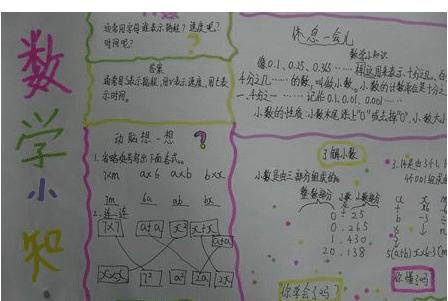 数学小知
通常用字母谁表示路程?速度呢?
时间呢?
答案
通常用S表示路程,用v表示速度,用t表
示时间。
动脑想一想?
1.省略乘号写出下面各式。
7×m a×6 a×b b×x
7m 6a ab bx
2.连一连
7×7 a+a x² x+x
a×a
x×x 7² a² 2a 2x
休息一会儿
数学小知识
像0.1、0.25、0.365……用来表示十分之几、百
分之几……的数,叫做小数。小数的计数单位是十分之
一、百分之一……记作0.1、0.01、0.001……
小数的性质:小数末尾添上"0"或去掉"0",小数大小
了解小数
小数是由三部分组成的。
整数部分 小数点 小数部分
0 . 25
0 . 265
1 . 430
20 . 138
你学会了吗?
你懂了吗